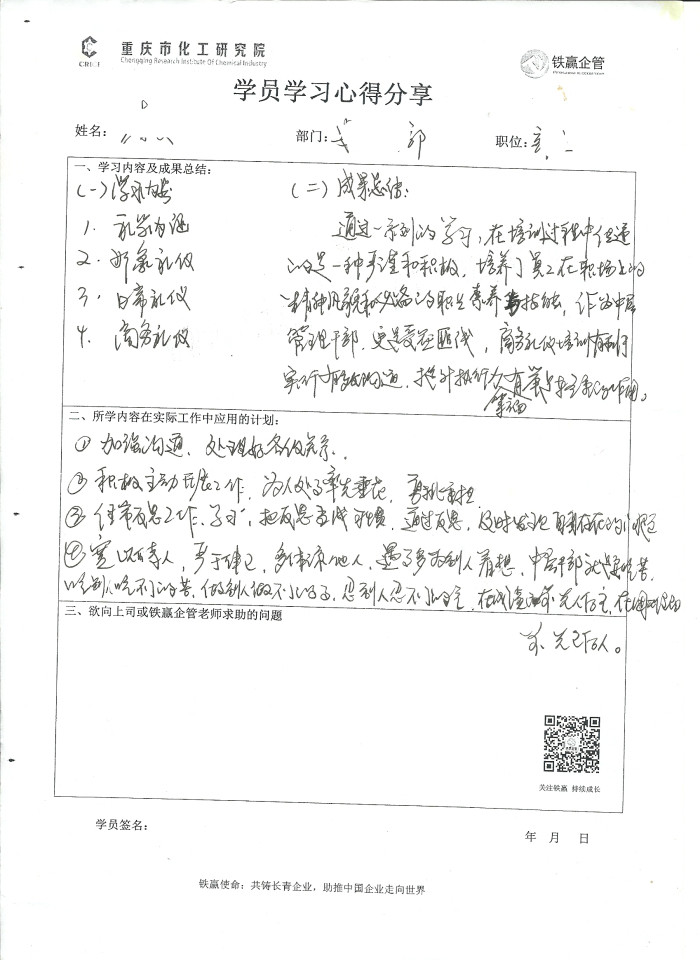 重庆市化工研究院
CRICI
Chongqing Research Institute Of Chemical Industry
铁赢企管
学员学习心得分享
姓名:
部门: 部
职位:
一、学习内容及成果总结:
(一)学习内容
1. 礼学内涵
2. 形象礼仪
3. 日常礼仪
4. 商务礼仪
(二)成果总结:
通过一系列的学习,在培训过程中传递
的是一种严谨和积极,培养了员工在职场上的
精神风貌和必备的职业素养与技能,作为中层
管理干部,更是受益匪浅,商务礼仪培训有利于
实行有效沟通,提升执行力有着
二、所学内容在实际工作中应用的计划:
① 加强沟通,处理好各级关系.
② 积极主动开展工作,为人处事率先垂范,勇挑重担
③ 经常反思工作、学习,把反思变成习惯,通过反思,及时发现自身存在的
④ 宽以待人,严于律己,多体谅他人,遇事多为别人着想,中层干部就是要吃苦,
吃别人吃不了的苦,做别人做不了的事,忍别人忍不了的
三、欲向上司或铁赢企管老师求助的问题
关注铁赢 持续成长
学员签名:
年 月 日
铁赢使命:共铸长青企业,助推中国企业走向世界